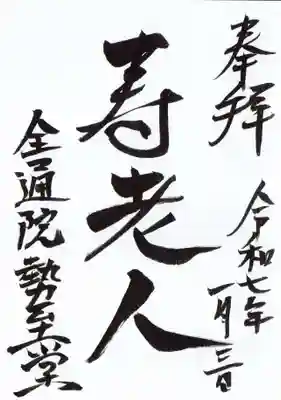 奉拝
令和七年
一月三日
寿老人
全通院勢至堂